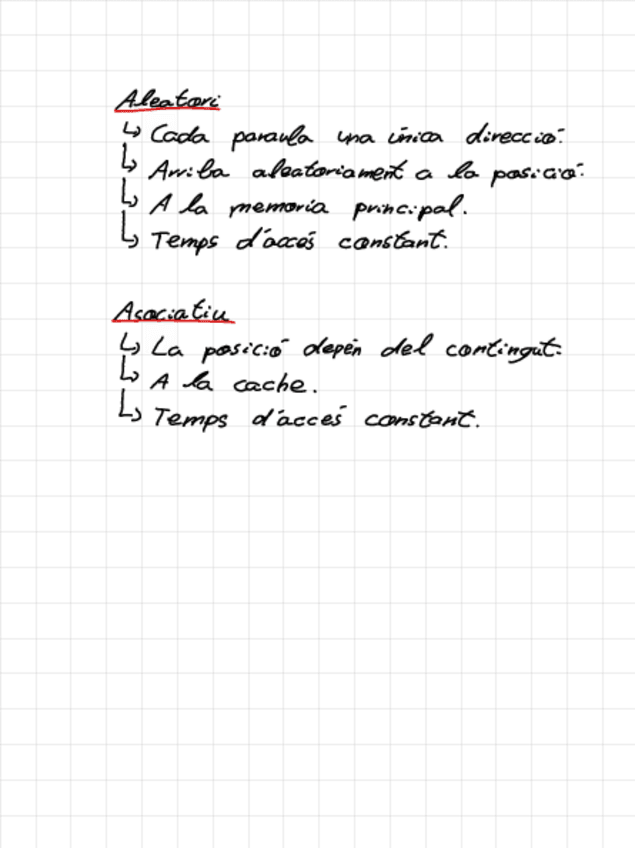 Aleatori
↳ Cada paraula una única direcció.
↳ Arriba aleatoriament a la posició.
↳ A la memoria principal.
↳ Temps d'accés constant.
Asociatiu
↳ La posició depèn del contingut.
↳ A la cache.
↳ Temps d'accés constant.